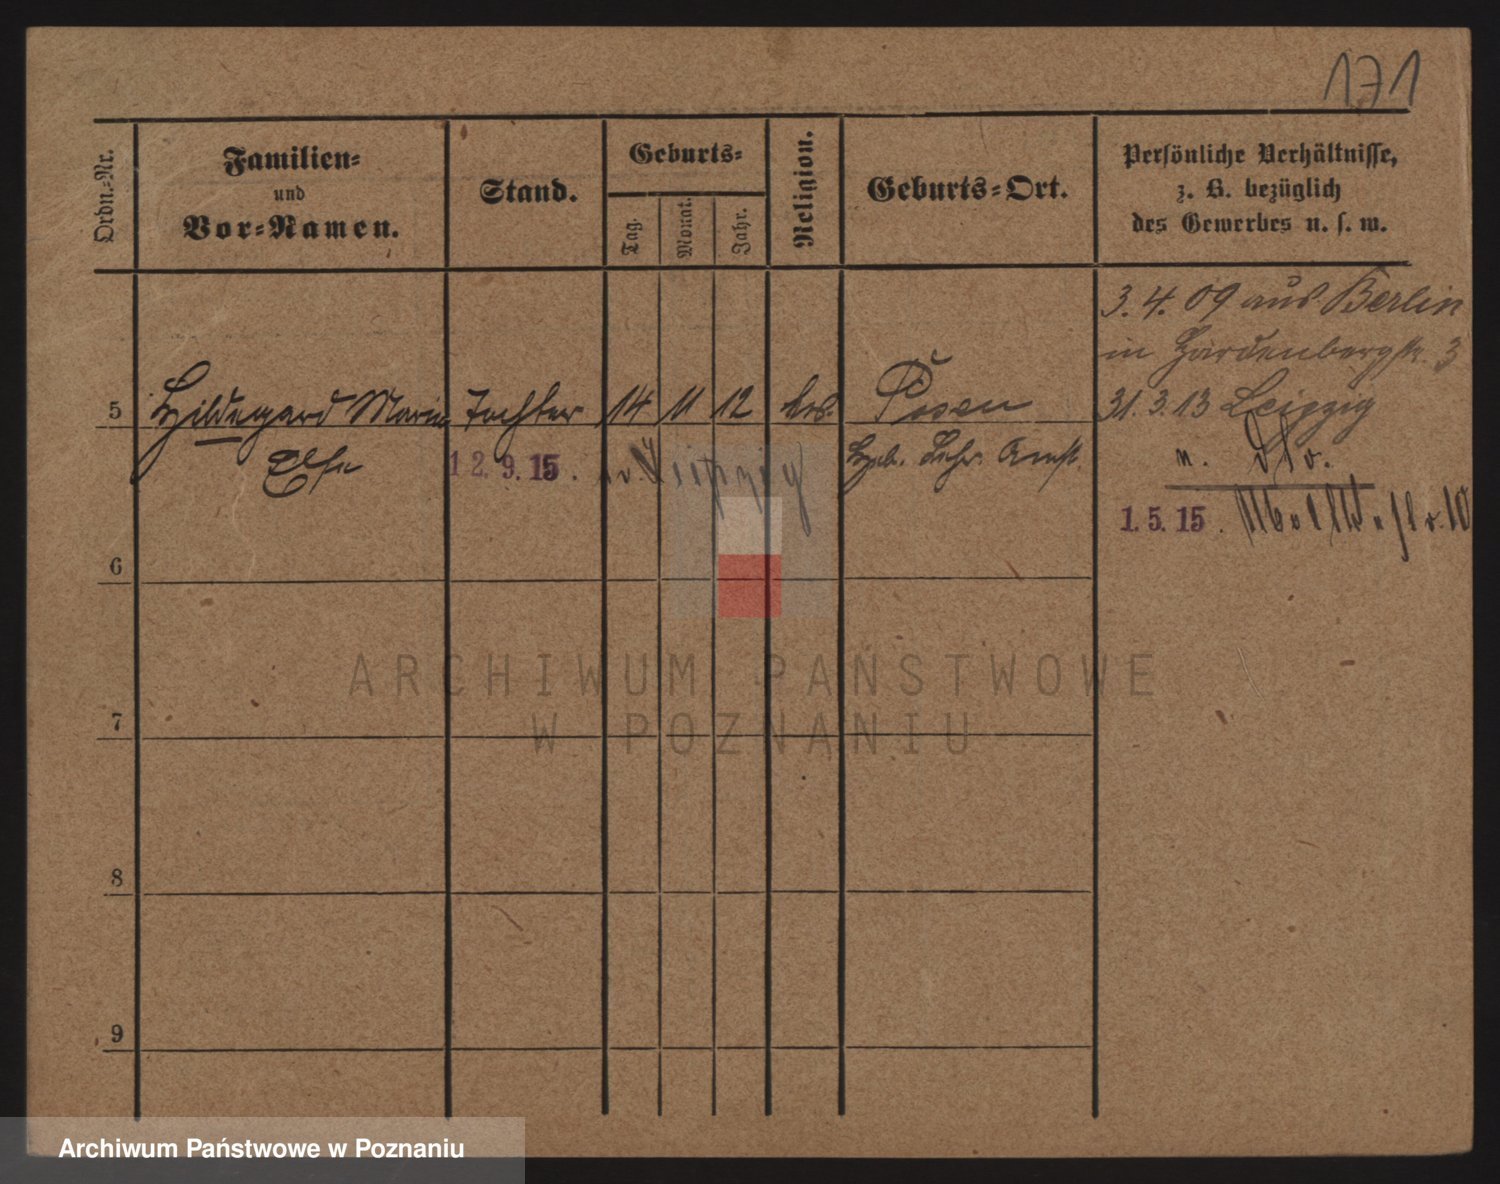 171
Ordn.=Nr.
Familien=
und
Vor=Namen.
Stand.
Geburts=
Tag.
Monat.
Jahr.
Religion.
Geburts=Ort.
Persönliche Verhältnisse,
z. B. bezüglich
des Gewerbes u. s. w.
3.4.09 aus Berlin
in Hardenbergstr. 3
5 Hildegard Marie Tochter 14 11 12 Posen
31.3.13 Leipzig
Else
12.9.15. Leipzig
n.
1.5.15.
6
7
8
9
ARCHIWUM PAŃSTWOWE
W POZNANIU
Archiwum Państwowe w Poznaniu